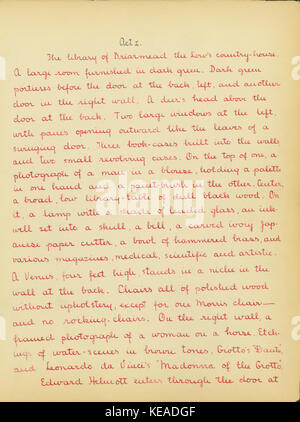 Act I.
The library of Briarmead, the Low's country-house.
A large room furnished in dark green. Dark green
portieres before the door at the back, left, and another
door in the right wall. A deer's head above the
door at the back. Two large windows at the left,
with panes opening outward like the leaves of a
swinging door. Three book-cases built into the walls
and two small revolving cases. On the top of one, a
photograph of a man in a blouse, holding a palette
in one hand and a paint-brush in the other. Center,
a broad, low library-table of dull black wood. On
it, a lamp with a shade of leaded glass, an ink-
well set into a skull, a bell, a carved ivory Jap-
anese paper cutter, a bowl of hammered brass, and
various magazines, medical, scientific and artistic.
A Venus, four feet high, stands in a niche in the
wall at the back. Chairs all of polished wood
without upholstery, except for one Morris chair—
and no rocking-chairs. On the right wall, a
framed photograph of a woman on a horse. Etch-
ings of water-scenes in brown tones, Giotto's "Dante",
and Leonardo da Vinci's "Madonna of the Grotto".
Edward Helmcott enters through the door at
alamy
www.alamy.com
KEADGF